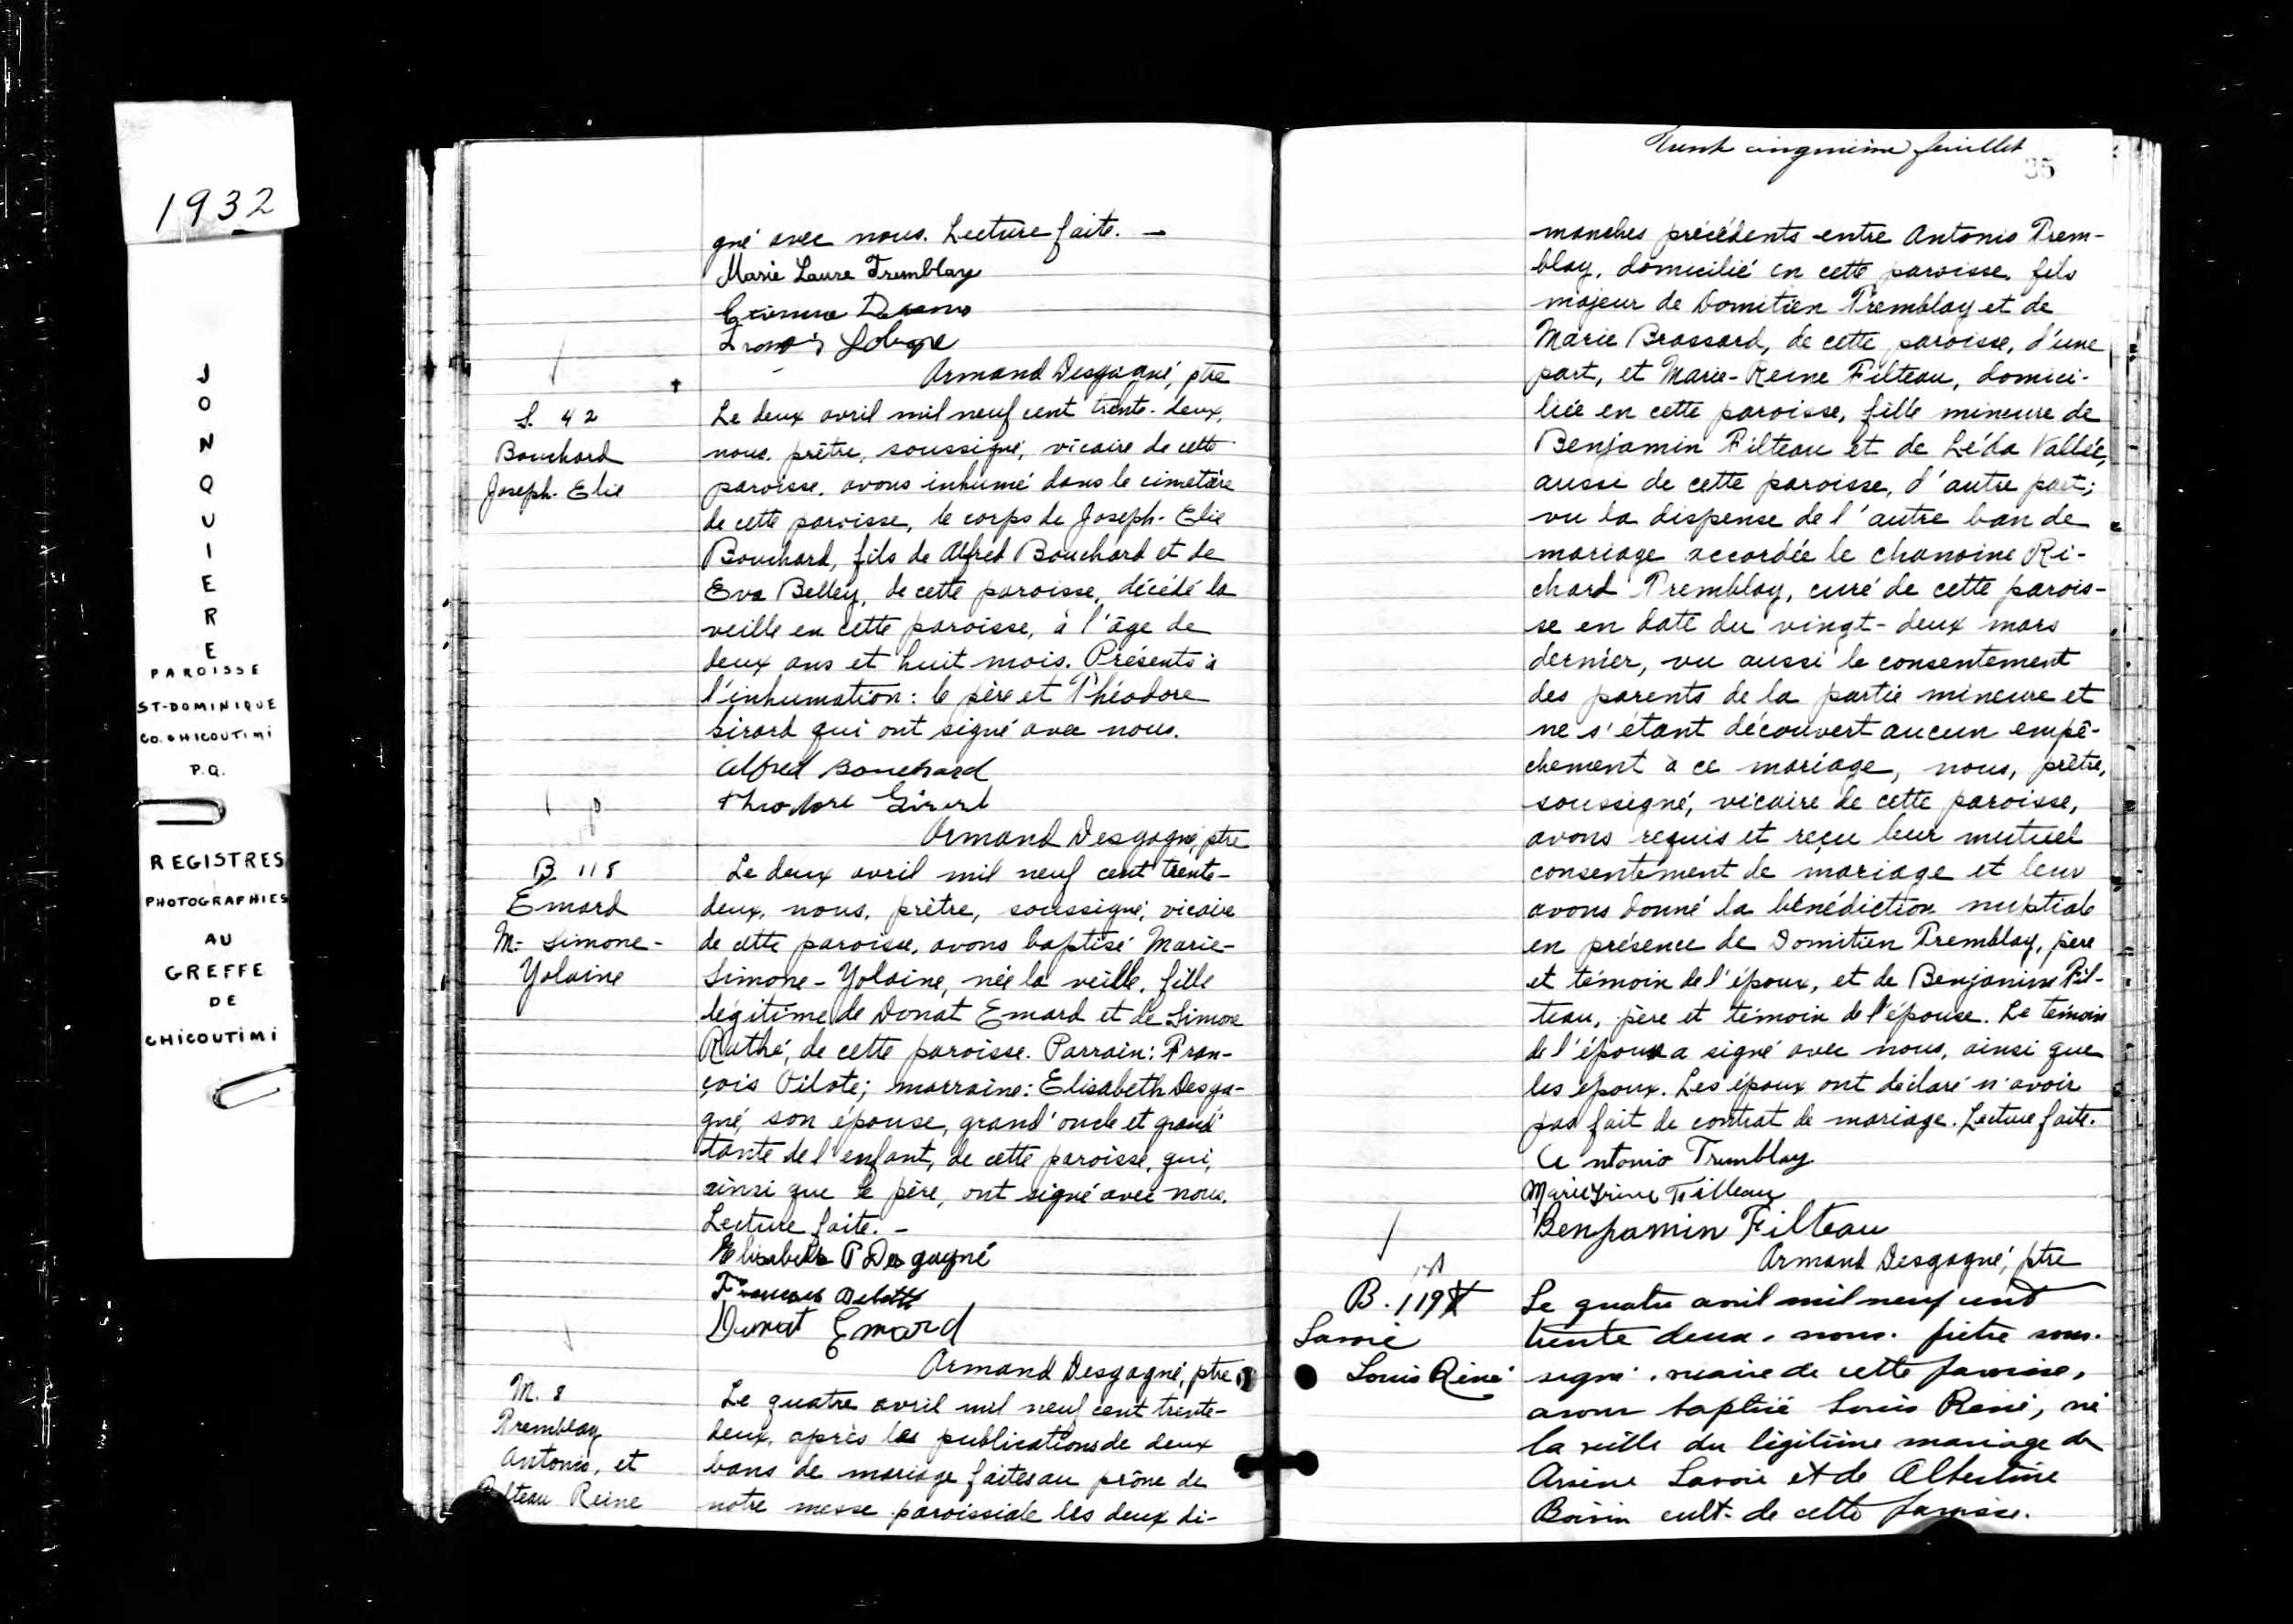 1932
JONQUIERE
PAROISSE
ST-DOMINIQUE
CO. CHICOUTIMI
P.Q.
REGISTRES
PHOTOGRAPHIES
AU
GREFFE
DE
CHICOUTIMI
gné avec nous. Lecture faite. —
Marie Laure Tremblay
Armand Desgagné, ptre
S. 42
Bouchard
Joseph-Elie
Le deux avril mil neuf cent trente-deux,
nous, prêtre, soussigné, vicaire de cette
paroisse, avons inhumé dans le cimetière
de cette paroisse, le corps de Joseph-Elie
Bouchard, fils de Alfred Bouchard et de
Eva Belley, de cette paroisse, décédé la
veille en cette paroisse, à l'âge de
deux ans et huit mois. Présents à
l'inhumation: le père et Théodore
Girard qui ont signé avec nous.
Alfred Bouchard
Theodore Girard
Armand Desgagné, ptre
B. 118
Emard
M.- Simone-
Yolaine
Le deux avril mil neuf cent trente-
deux, nous, prêtre, soussigné, vicaire
de cette paroisse, avons baptisé Marie-
Simone-Yolaine, née la veille, fille
légitime de Donat Emard et de Simone
Rathé, de cette paroisse. Parrain: Fran-
çois Pilote; marraine: Elisabeth Desga-
gné, son épouse, grand'oncle et grand'
tante de l'enfant, de cette paroisse, qui,
ainsi que le père, ont signé avec nous.
Lecture faite. —
Elisabeth P Desgagné
Donat Emard
Armand Desgagné, ptre
M. 8
Tremblay
Antonio, et
Filteau Reine
Le quatre avril mil neuf cent trente-
deux, après les publications de deux
bans de mariage faites au prône de
notre messe paroissiale les deux di-
Trente cinquième feuillet
35
manches précédents entre Antonio Trem-
blay, domicilié en cette paroisse, fils
majeur de Domitien Tremblay et de
Marie Brassard, de cette paroisse, d'une
part, et Marie-Reine Filteau, domici-
liée en cette paroisse, fille mineure de
Benjamin Filteau et de Léda Vallée,
aussi de cette paroisse, d'autre part;
vu la dispense de l'autre ban de
mariage accordée le chanoine Ri-
chard Tremblay, curé de cette parois-
se en date du vingt-deux mars
dernier, vu aussi le consentement
des parents de la partie mineure et
ne s'étant découvert aucun empê-
chement à ce mariage, nous, prêtre,
soussigné, vicaire de cette paroisse,
avons requis et reçu leur mutuel
consentement de mariage et leur
avons donné la bénédiction nuptiale
en présence de Domitien Tremblay, père
et témoin de l'époux, et de Benjamin Fil-
teau, père et témoin de l'épouse. Le témoin
de l'épouse a signé avec nous, ainsi que
les époux. Les époux ont déclaré n'avoir
pas fait de contrat de mariage. Lecture faite.
Antonio Tremblay
Benjamin Filteau
Armand Desgagné, ptre
B. 119
Savoie
Louis René
Le quatre avril mil neuf cent
trente deux, nous, prêtre sous-
signé, vicaire de cette paroisse,
avons baptisé Louis René, né
la veille du légitime mariage de
Arsène Savoie et de Albertine
Boivin cult. de cette paroisse.